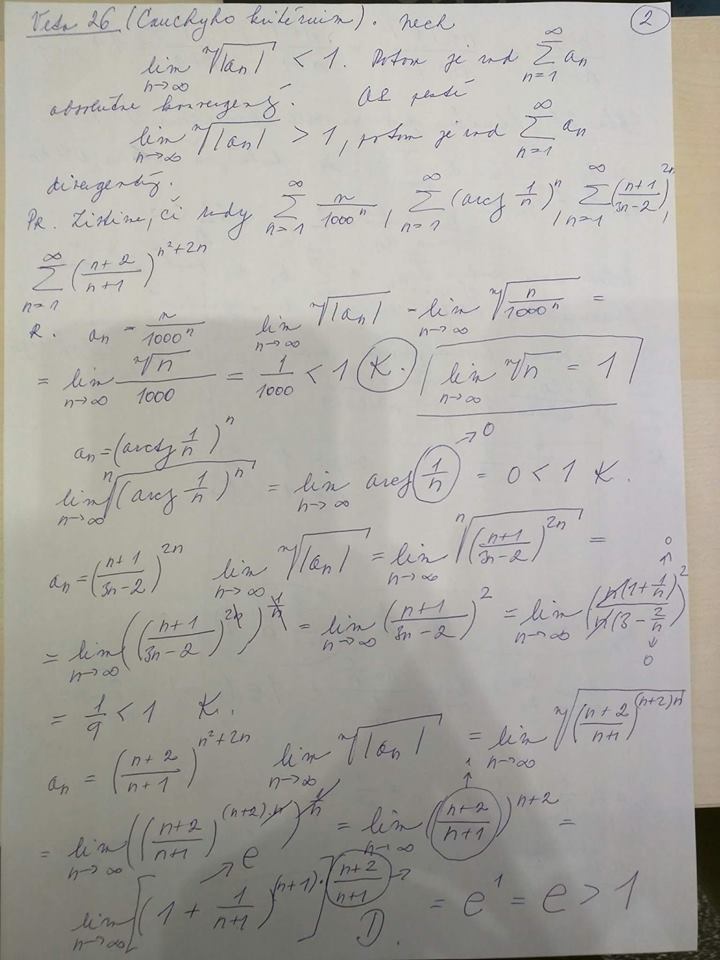 Veta 26 (Cauchyho kritérium). Nech ②
lim_{n→∞} ⁿ√|aₙ| < 1. Potom je rad ∑_{n=1}^{∞} aₙ
absolútne konvergentný. Ak platí
lim_{n→∞} ⁿ√|aₙ| > 1, potom je rad ∑_{n=1}^{∞} aₙ
divergentný.
Pr. Zistime, či rady ∑_{n=1}^{∞} n/1000ⁿ, ∑_{n=1}^{∞} (arctg 1/n)ⁿ, ∑_{n=1}^{∞} ((n+1)/(3n-2))^{2n},
∑_{n=1}^{∞} ((n+2)/(n+1))^{n²+2n}
R. aₙ = n/1000ⁿ lim_{n→∞} ⁿ√|aₙ| = lim_{n→∞} ⁿ√(n/1000ⁿ) =
= lim_{n→∞} ⁿ√n / 1000 = 1/1000 < 1 K. lim_{n→∞} ⁿ√n = 1
aₙ = (arctg 1/n)ⁿ → 0
lim_{n→∞} ⁿ√((arctg 1/n)ⁿ) = lim_{n→∞} arctg (1/n) = 0 < 1 K.
aₙ = ((n+1)/(3n-2))^{2n} lim_{n→∞} ⁿ√|aₙ| = lim_{n→∞} ⁿ√(((n+1)/(3n-2))^{2n}) =
= lim_{n→∞} (((n+1)/(3n-2))^{2n})^{1/n} = lim_{n→∞} ((n+1)/(3n-2))² = lim_{n→∞} (n(1+1/n)/n(3-2/n))² → 0 → 0
= 1/9 < 1 K.
aₙ = ((n+2)/(n+1))^{n²+2n} lim_{n→∞} ⁿ√|aₙ| = lim_{n→∞} ⁿ√(((n+2)/(n+1))^{(n+2)n})
= lim_{n→∞} (((n+2)/(n+1))^{(n+2)·n})^{1/n} = lim_{n→∞} ((n+2)/(n+1))^{n+2} = → 1
lim_{n→∞} [(1 + 1/(n+1))^{(n+1)}]^{(n+2)/(n+1)} → e → = e¹ = e > 1
D.